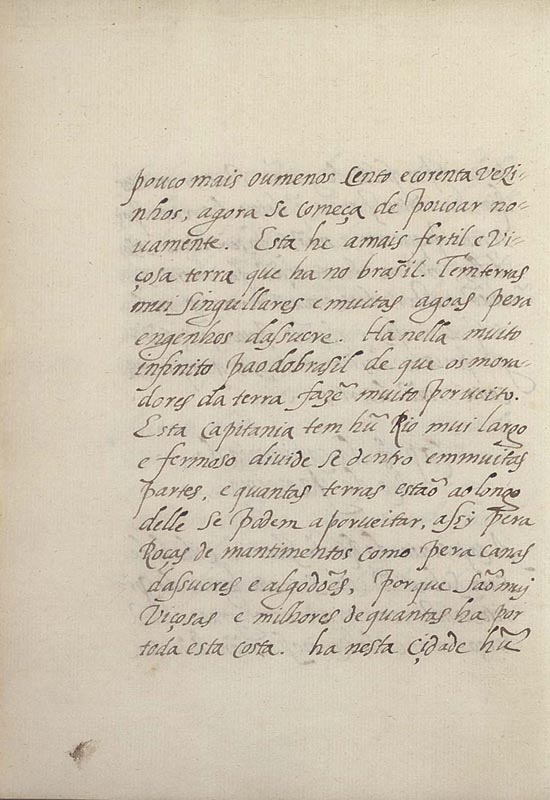 pouco mais oumenos Cento ecorenta vezi-
nhos, agora se começa de pouoar no-
uamente. Esta he amais fertil e Vi-
çosa terra que ha no brasil. Temterras
mui singullares e muitas agoas pera
engenhos dassucre. Ha nella muito
infinito pao dobrasil de que os mora-
dores da terra fazẽ muito porueito.
Esta Capitania tem hũ Rio mui largo
e fermoso divide se dentro emmuitas
partes, e quantas terras estaõ ao longo
delle se podem aporueitar, assy pera
Roças de mantimentos como pera canas
dassucres e algodoẽs, porque saõ muj
Viçosas e milhores de quantas ha por
toda esta Costa. ha nesta Cidade hũ